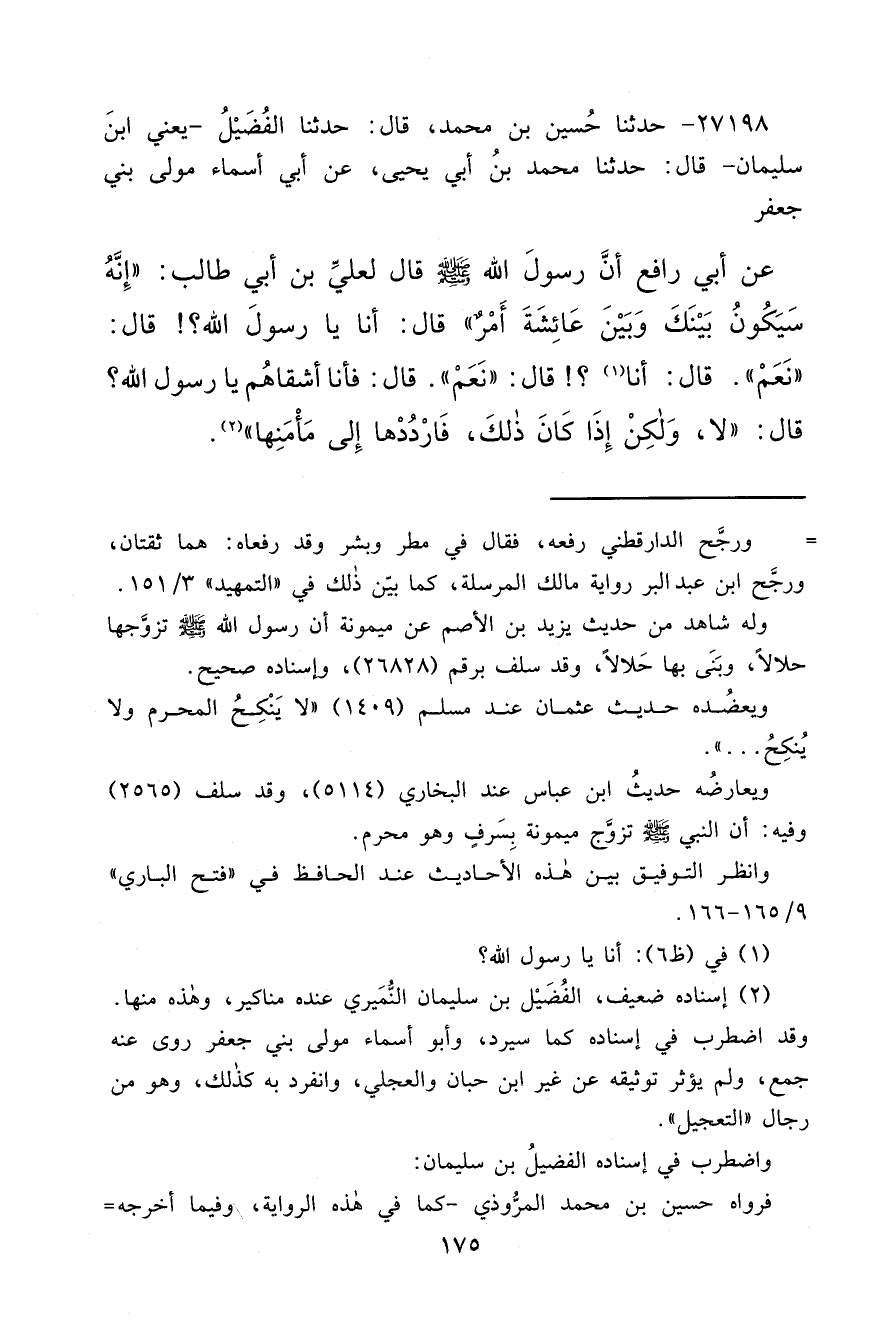 ٢٧١٩٨- حدثنا حُسين بن محمد، قال: حدثنا الفُضَيْلُ -يعني ابنَ
سليمان- قال: حدثنا محمد بنُ أبي يحيى، عن أبي أسماء مولى بني
جعفر
عن أبي رافع أنَّ رسولَ الله ﷺ قال لعليِّ بن أبي طالب: «إِنَّهُ
سَيَكُونُ بَيْنَكَ وَبَيْنَ عَائِشَةَ أَمْرٌ» قال: أنا يا رسولَ الله؟! قال:
«نَعَمْ». قال: أنا(١) ؟! قال: «نَعَمْ». قال: فأنا أشقاهُم يا رسول الله؟
قال: «لا، وَلٰكِنْ إِذَا كَانَ ذٰلكَ، فَارْدُدْها إِلى مَأْمَنِها»(٢).
= ورجَّح الدارقطني رفعه، فقال في مطر وبشر وقد رفعاه: هما ثقتان،
ورجَّح ابن عبد البر رواية مالك المرسلة، كما بيّن ذٰلك في «التمهيد» ٣/ ١٥١.
وله شاهد من حديث يزيد بن الأصم عن ميمونة أن رسول الله ﷺ تزوَّجها
حلالاً، وبَنَى بها حَلالاً، وقد سلف برقم (٢٦٨٢٨)، وإسناده صحيح.
ويعضُده حديث عثمان عند مسلم (١٤٠٩) «لا يَنْكِحُ المحرم ولا
يُنكِحُ...».
ويعارضُه حديثُ ابن عباس عند البخاري (٥١١٤)، وقد سلف (٢٥٦٥)
وفيه: أن النبي ﷺ تزوَّج ميمونة بِسَرفٍ وهو محرم.
وانظر التوفيق بين هٰذه الأحاديث عند الحافظ في «فتح الباري»
٩/ ١٦٥-١٦٦.
(١) في (ظ٦): أنا يا رسول الله؟
(٢) إسناده ضعيف، الفُضَيْل بن سليمان النُّمَيري عنده مناكير، وهٰذه منها.
وقد اضطرب في إسناده كما سيرد، وأبو أسماء مولى بني جعفر روى عنه
جمع، ولم يؤثر توثيقه عن غير ابن حبان والعجلي، وانفرد به كذلك، وهو من
رجال «التعجيل».
واضطرب في إسناده الفضيلُ بن سليمان:
فرواه حسين بن محمد المرُّوذي -كما في هٰذه الرواية، وفيما أخرجه=
١٧٥